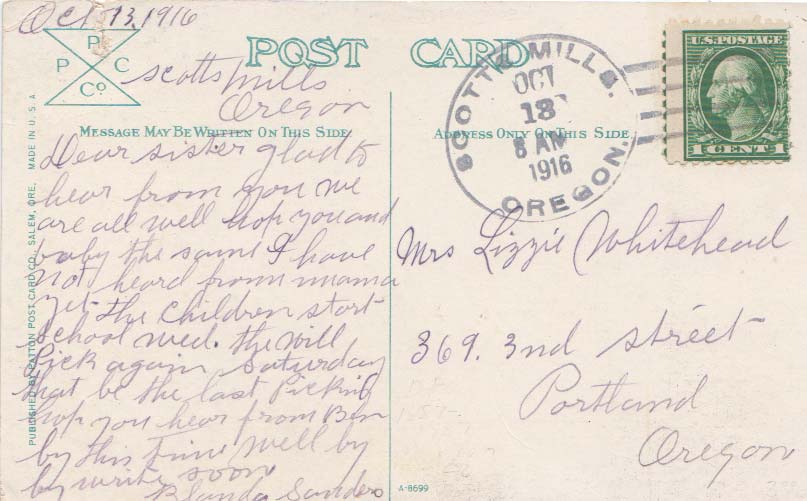 Oct 13, 1916
P
P C
Co
POST CARD
Scotts mills
Oregon
MESSAGE MAY BE WRITTEN ON THIS SIDE
ADDRESS ONLY ON THIS SIDE
Dear sister glad to
hear from you we
are all well hop you and
baby the same I have
not heard from mama
yet the children start
school wed. the will
Pick again Saturday
that be the last Picking
hop you hear from Ben
by this time well by
by write soon
Blanda Sanders
PUBLISHED BY PATTON POST CARD CO., SALEM, ORE. MADE IN U.S.A
SCOTTS MILLS,
OCT
13
8 AM
1916
OREGON.
U.S. POSTAGE
1 CENT 1
Mrs Lizzie Whitehead
369. 2nd street
Portland
Oregon
A-8699